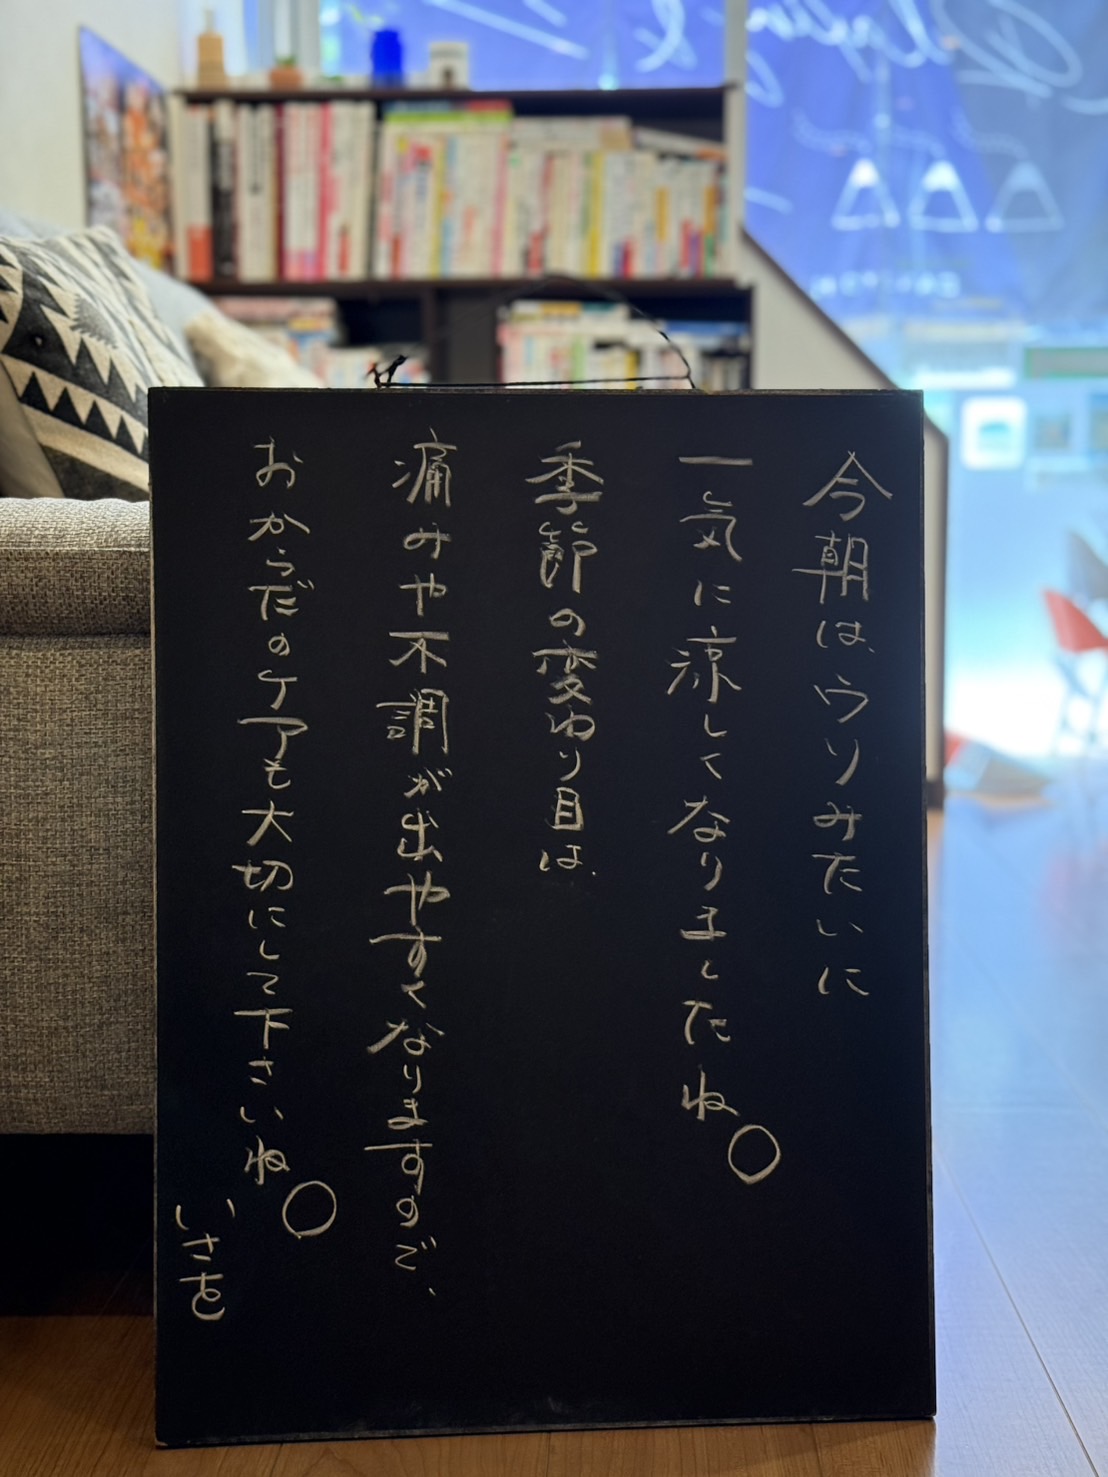 今朝は、ウソみたいに
一気に涼しくなりましたね。
季節の変わり目は、
痛みや不調が出やすくなりますので、
おからだのケアも大切にして下さいね。
いさを